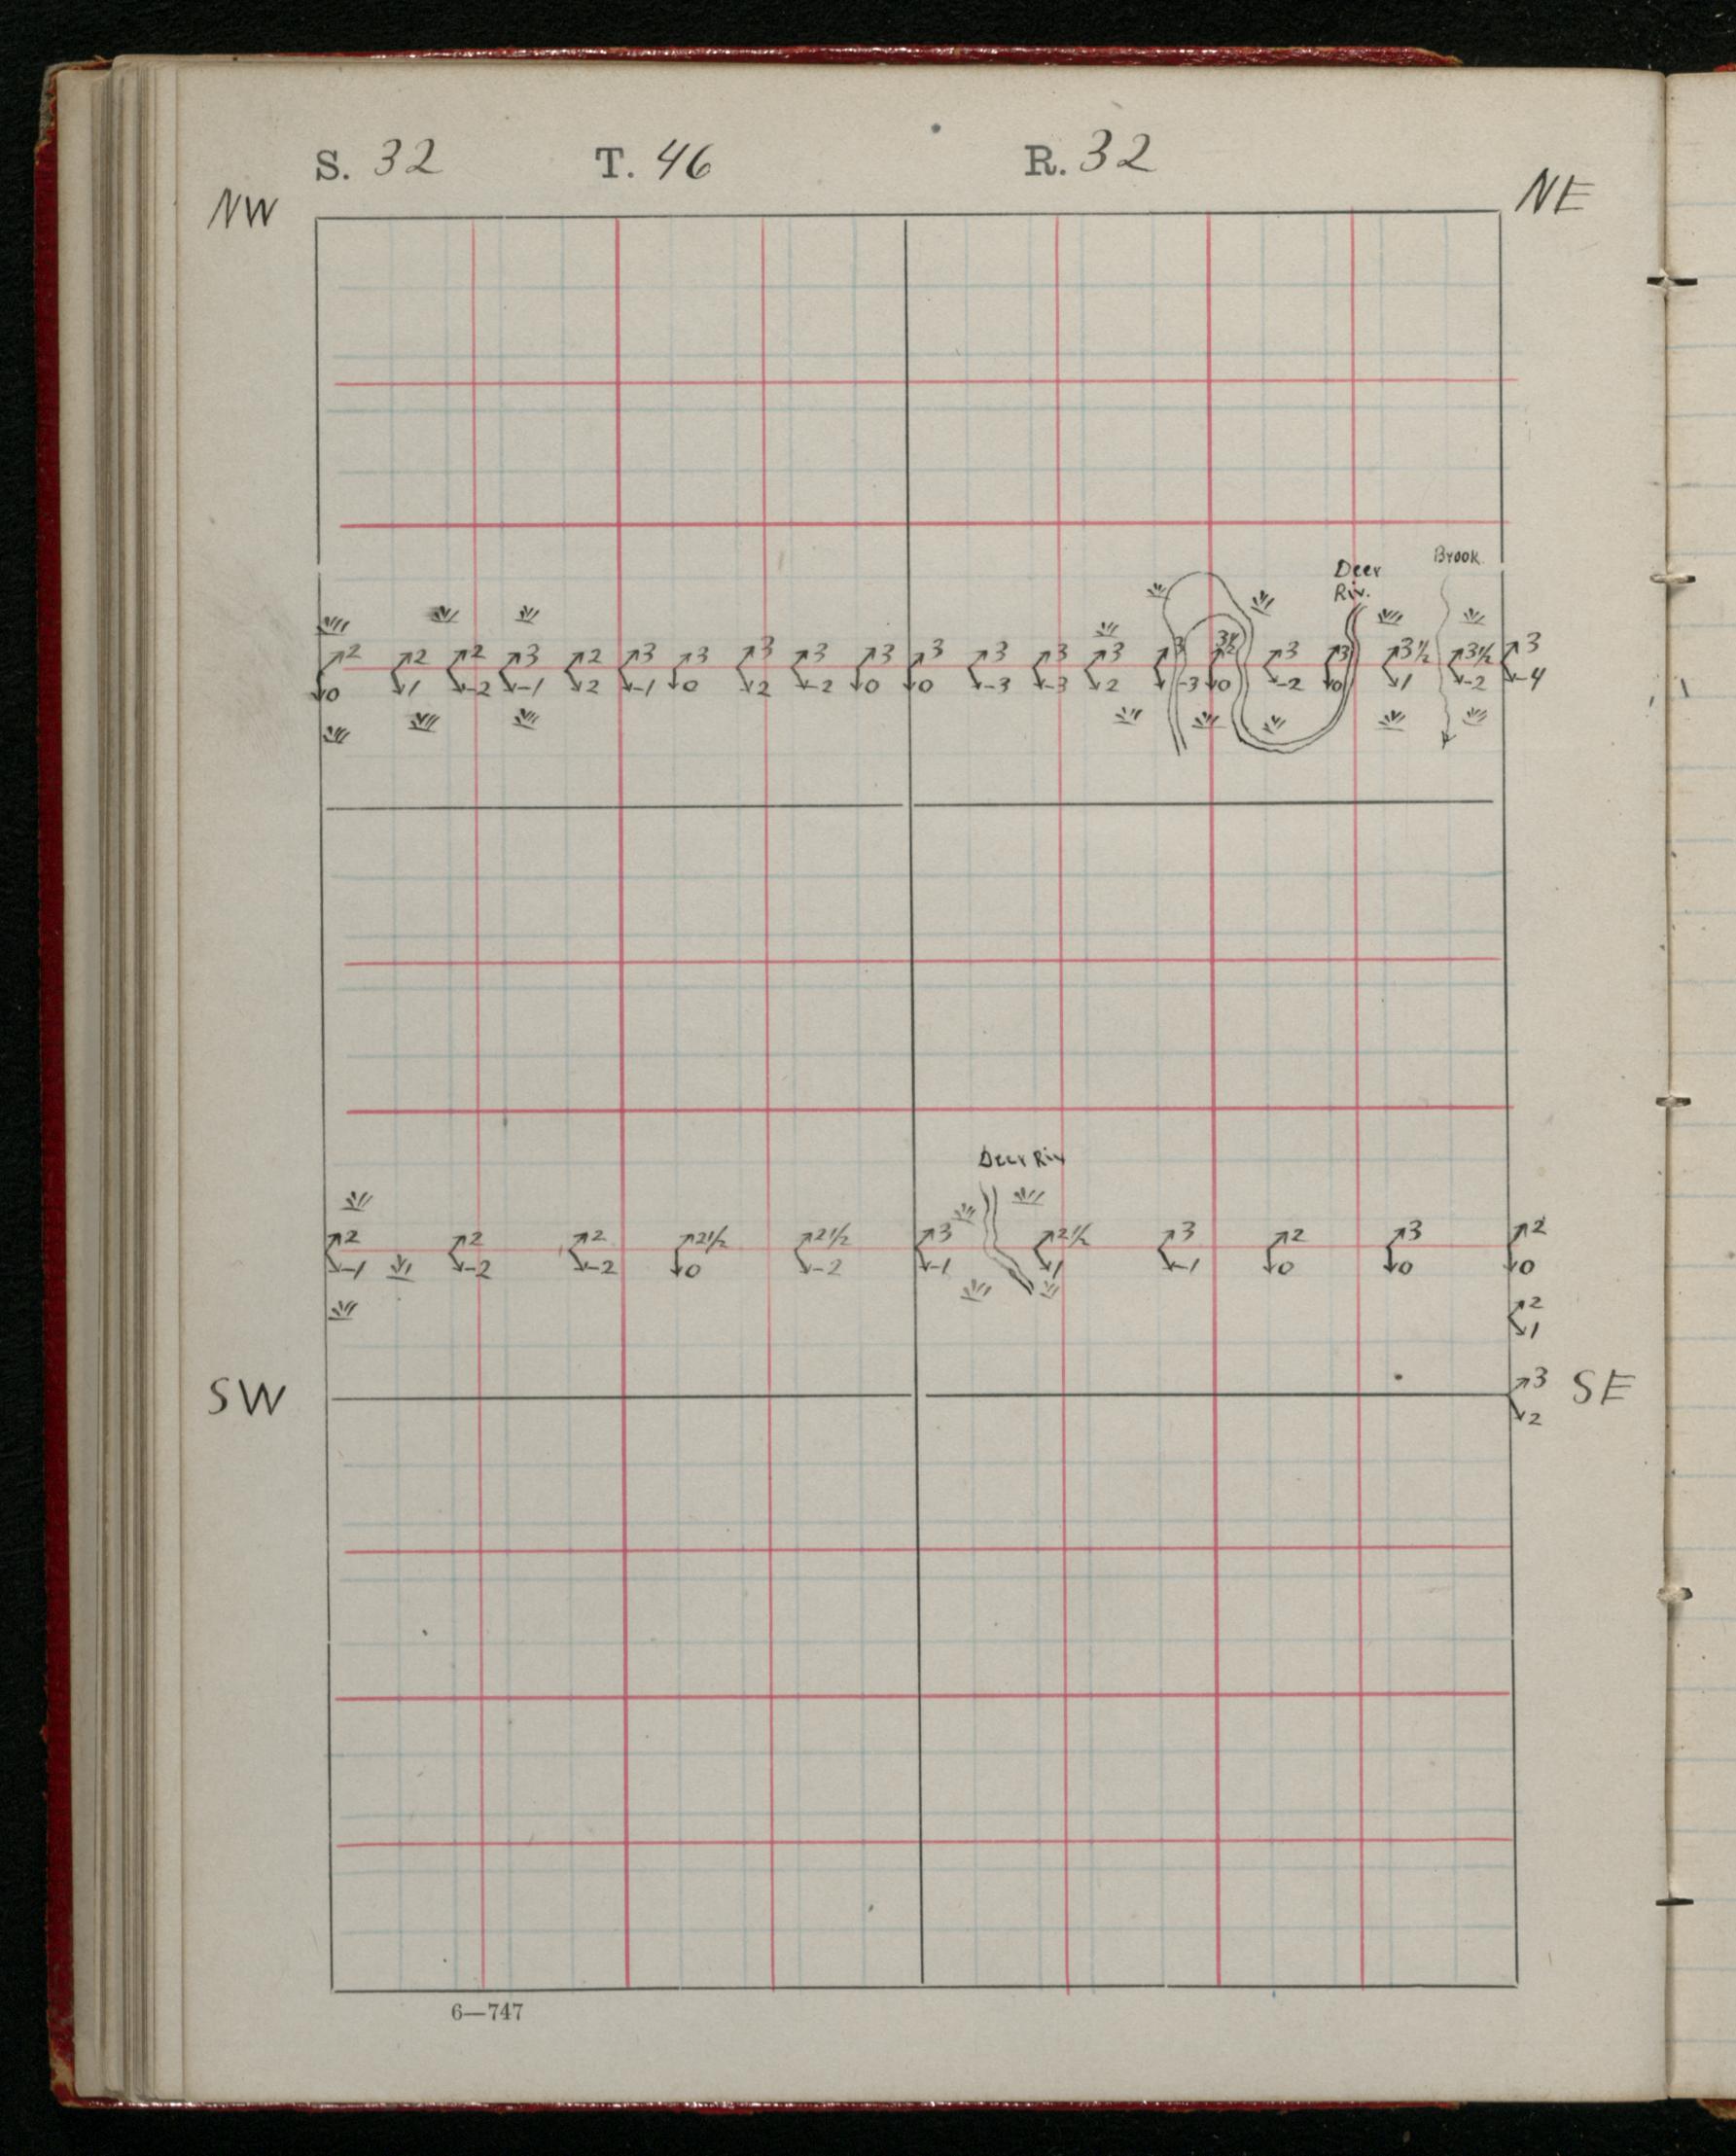 S. 32 T. 46 R. 32
NW NE
Brook
Deer
Riv.
2 2 2 3 2 3 3 3 3 3 3 3 3 3 3 3 3 3½ 3½ 3
0 1 -2 -1 2 -1 0 2 -2 0 0 -3 -3 2 -3 0 -2 0 1 -2 -4
Deer Riv
2 2 2 2½ 2½ 3 2½ 3 2 3 2
-1 -2 -2 0 -2 -1 1 -1 0 0 0
2
1
SW 3 SE
2
6—747